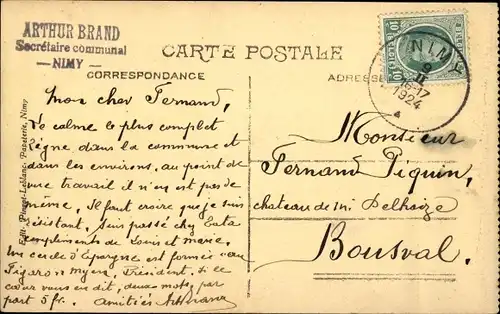 ARTHUR BRAND
Secrétaire communal
— NIMY —
CARTE POSTALE
CORRESPONDANCE
ADRESSE
NIMY
9
II
16-17
1924
Mon cher Fernand,
Le calme le plus complet
règne dans la commune et
dans les environs, au point de
vue travail il n'en est pas de
même. Il faut croire que je suis
résistant. Suis passé chez
compliments de Louis et Marie.
Un cercle d'Épargne est formé au
Président. Si le
cœur vous en dit, deux mots, par
part 5 fr. Amitiés
Monsieur
Fernand Piquin,
château de Mr Delhaize
Bousval.
Edit. Papeterie, Nimy